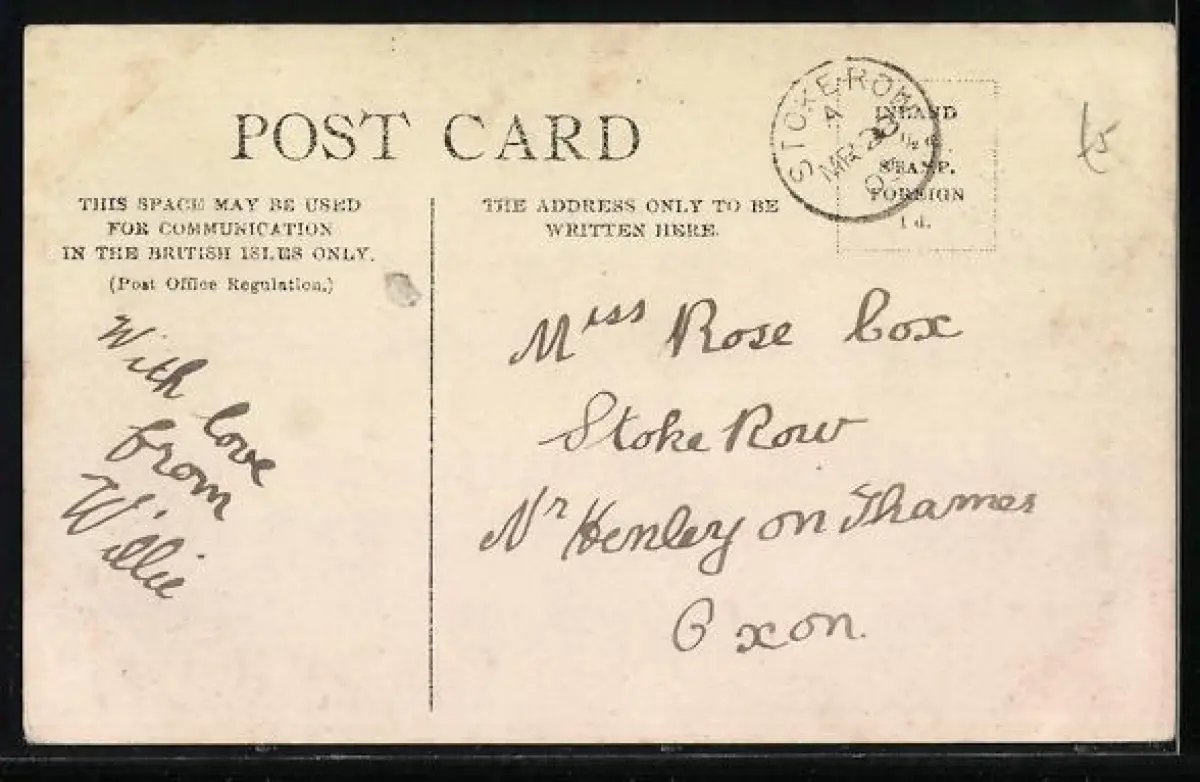 POST CARD
THIS SPACE MAY BE USED
FOR COMMUNICATION
IN THE BRITISH ISLES ONLY.
(Post Office Regulation.)
With love
from
Willie
THE ADDRESS ONLY TO BE
WRITTEN HERE.
STOKE ROW
A
INLAND
½ d.
STAMP.
FOREIGN
1 d.
Miss Rose Cox
Stoke Row
Nr Henley on Thames
Oxon.